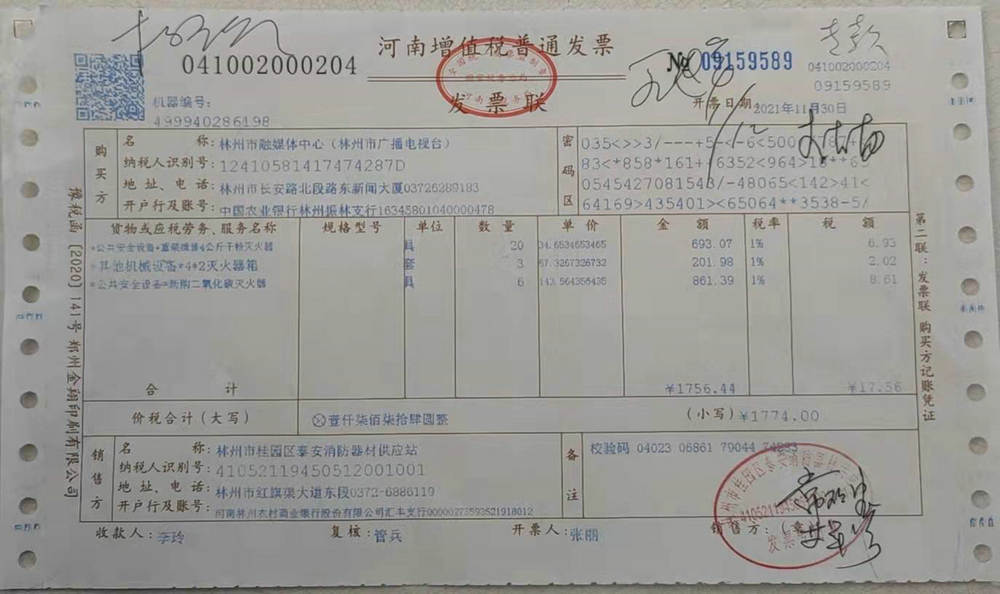 河南增值税普通发票
041002000204
№ 09159589
041002000204
09159589
机器编号:
499940286198
发票联
开票日期: 2021年11月30日
购买方
名称: 林州市融媒体中心（林州市广播电视台）
纳税人识别号: 12410581417474287D
地址、电话: 林州市长安路北段路东新闻大厦03726289183
开户行及账号: 中国农业银行林州振林支行16345801040000478
密码区
035<>>3/---+5
83<*858*161+
0545427081543/-48065<142>41<
64169>435401><65064**3538-5/
货物或应税劳务、服务名称 规格型号 单位 数量 单价 金额 税率 税额
*公共安全设备* 4公斤干粉灭火器 具 20 34.6534653465 693.07 1% 6.93
*其他机械设备*4*2灭火器箱 套 3 67.3267326732 201.98 1% 2.02
*公共安全设备*新购二氧化碳灭火器 具 6 143.564356435 861.39 1% 8.61
合计 ¥1756.44 ¥17.56
价税合计（大写） ⊗壹仟柒佰柒拾肆圆整 （小写）¥1774.00
销售方
名称: 林州市桂园区泰安消防器材供应站
纳税人识别号: 41052119450512001001
地址、电话: 林州市红旗渠大道东段0372-6886119
开户行及账号: 河南林州农村商业银行股份有限公司汇丰支行
备注
校验码 04023 06861 79044
收款人: 李玲 复核: 管兵 开票人: 张丽 销售方:（章）
第二联:发票联 购买方记账凭证
豫税函〔2020〕141号 郑州金翔印刷有限公司